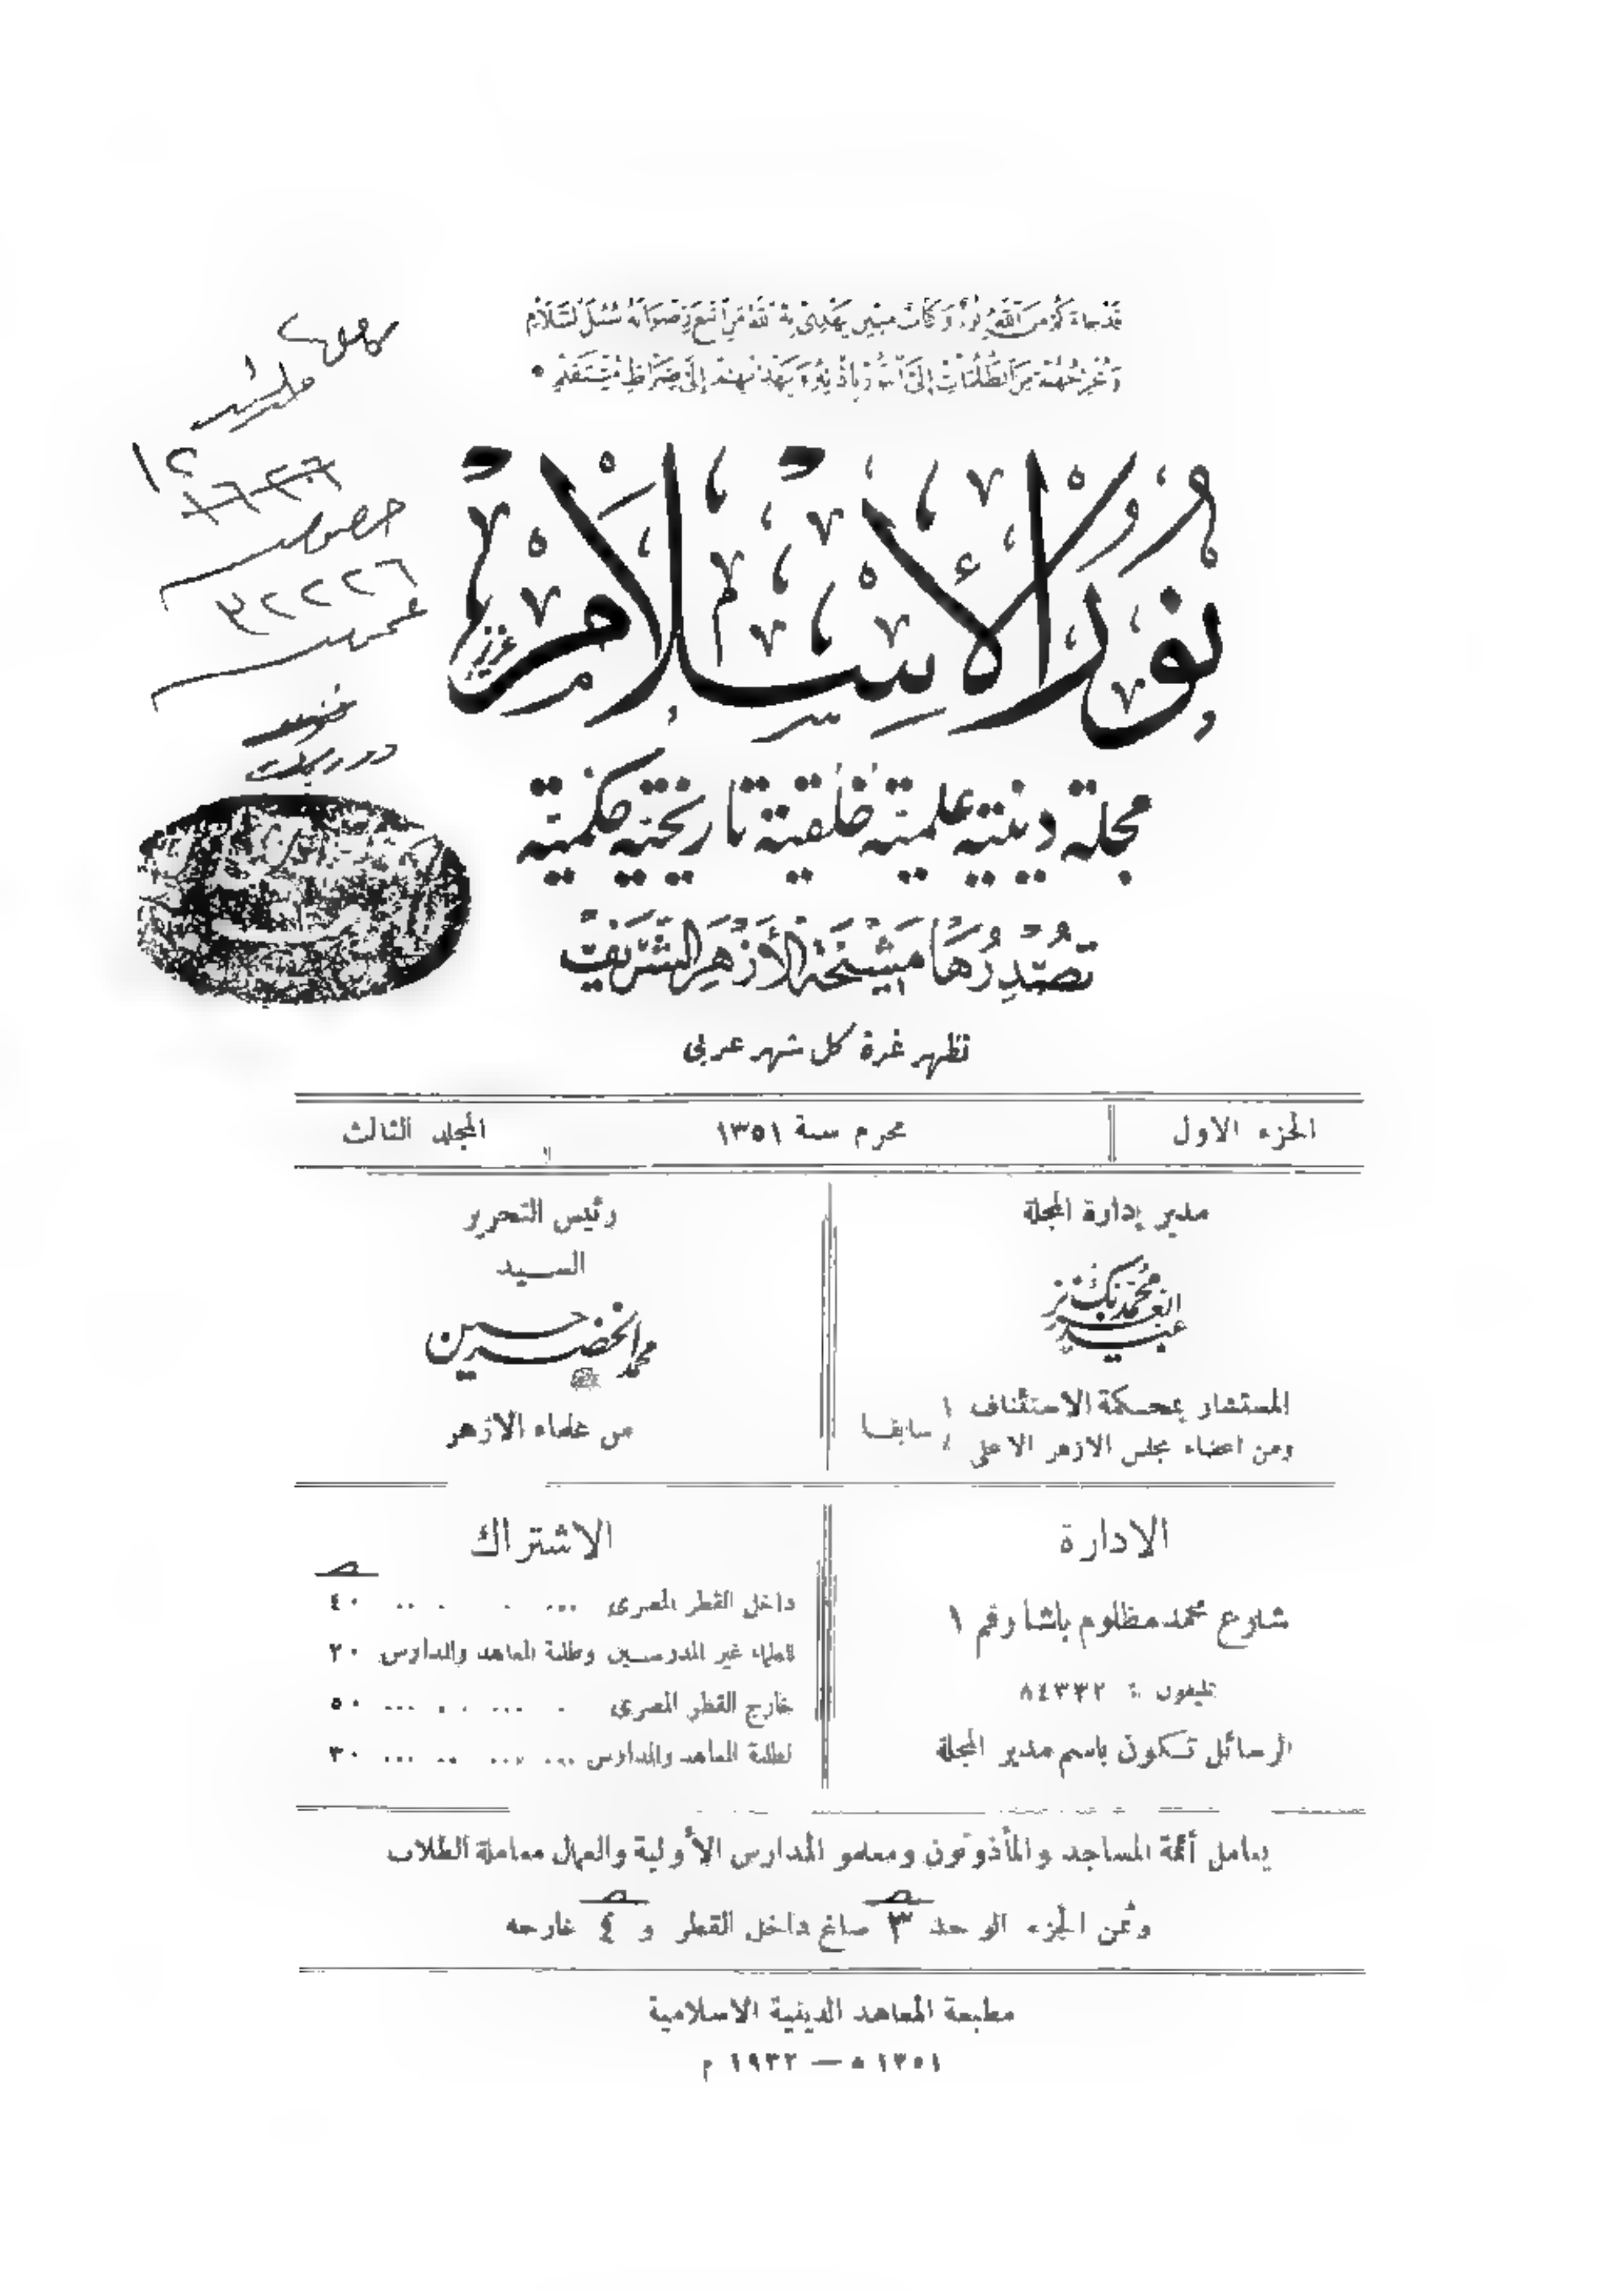 قد جاءكم من الله نور وكتاب مبين يهدي به الله من اتبع رضوانه سبل السلام
ويخرجهم من الظلمات إلى النور بإذنه ويهديهم إلى صراط مستقيم
نُورُ الْإِسْلَامِ
مجلة دينية علمية خلقية تاريخية حكمية
تُصْدِرُهَا مَشْيَخَةُ الأَزْهَرِ الشَّرِيفِ
تظهر غرة كل شهر عربى
الجزء الاول
محرم سنة ١٣٥١
المجلد الثالث
مدير إدارة المجلة
عبد العزيز محمد بك
المستشار بمحكمة الاستئناف
ومن اعضاء مجلس الازهر الاعلى
سابقا
رئيس التحرير
السيد
محمد الخضر حسين
من علماء الازهر
الادارة
شارع محمد مظلوم باشا رقم ١
تليفون : ٨٤٣٣٢
الرسائل تكون باسم مدير المجلة
الاشتراك
داخل القطر المصرى ... ٤٠
للعلماء غير المدرسين وطلبة المعاهد والمدارس ٢٠
خارج القطر المصرى ... ٥٠
لطلبة المعاهد والمدارس ... ٣٠
يعامل أئمة المساجد والمأذونون ومعلمو المدارس الأولية والعمال معاملة الطلاب
وثمن الجزء الواحد ٣ صاغ داخل القطر و ٤ خارجه
مطبعة المعاهد الدينية الاسلامية
١٣٥١ ه — ١٩٣٢ م